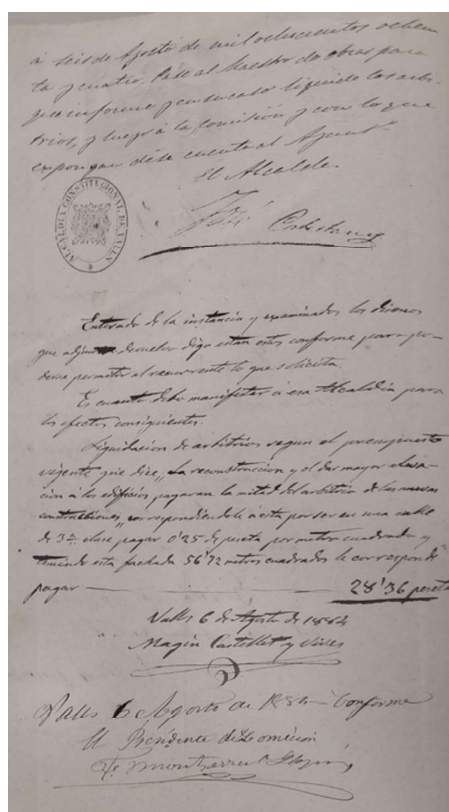 á seis de Agosto de mil ochocientos ochen
ta y cuatro. Pase al Maestro de obras para
que informe y en su caso liquide los arbi-
trios, y luego á la Comision y con lo que
expongan dése cuenta al Ayunt.º
El Alcalde
José
ALCALDÍA CONSTITUCIONAL DE VALLS
Enterado de la instancia y examinados los diseños
que adjuntos devuelvo digo estan estos conforme para po-
derse permeter al recurrente lo que solicita.
Es cuanto debo manifestar á esa Alcaldia para
los efectos consiguientes.
Liquidacion de arbitrios segun el presupuesto
vigente que dice, "La reconstruccion y el dar mayor eleva-
cion á los edificios pagaran la mitad del arbitrio de las nuevas
construcciones" correspondiendole á esta por ser en una calle
de 3.ª clase pagar 0'25 de peseta por metro cuadrado y
teniendo esta fachada 56'72 metros cuadrados le corresponde
pagar — 28'36 peseta
Valls 6 de Agosto de 1884
Magin Castellet y Vives
Valls 6 Agosto de 1884 — Conforme
El Presidente de la Comision
Montserrat